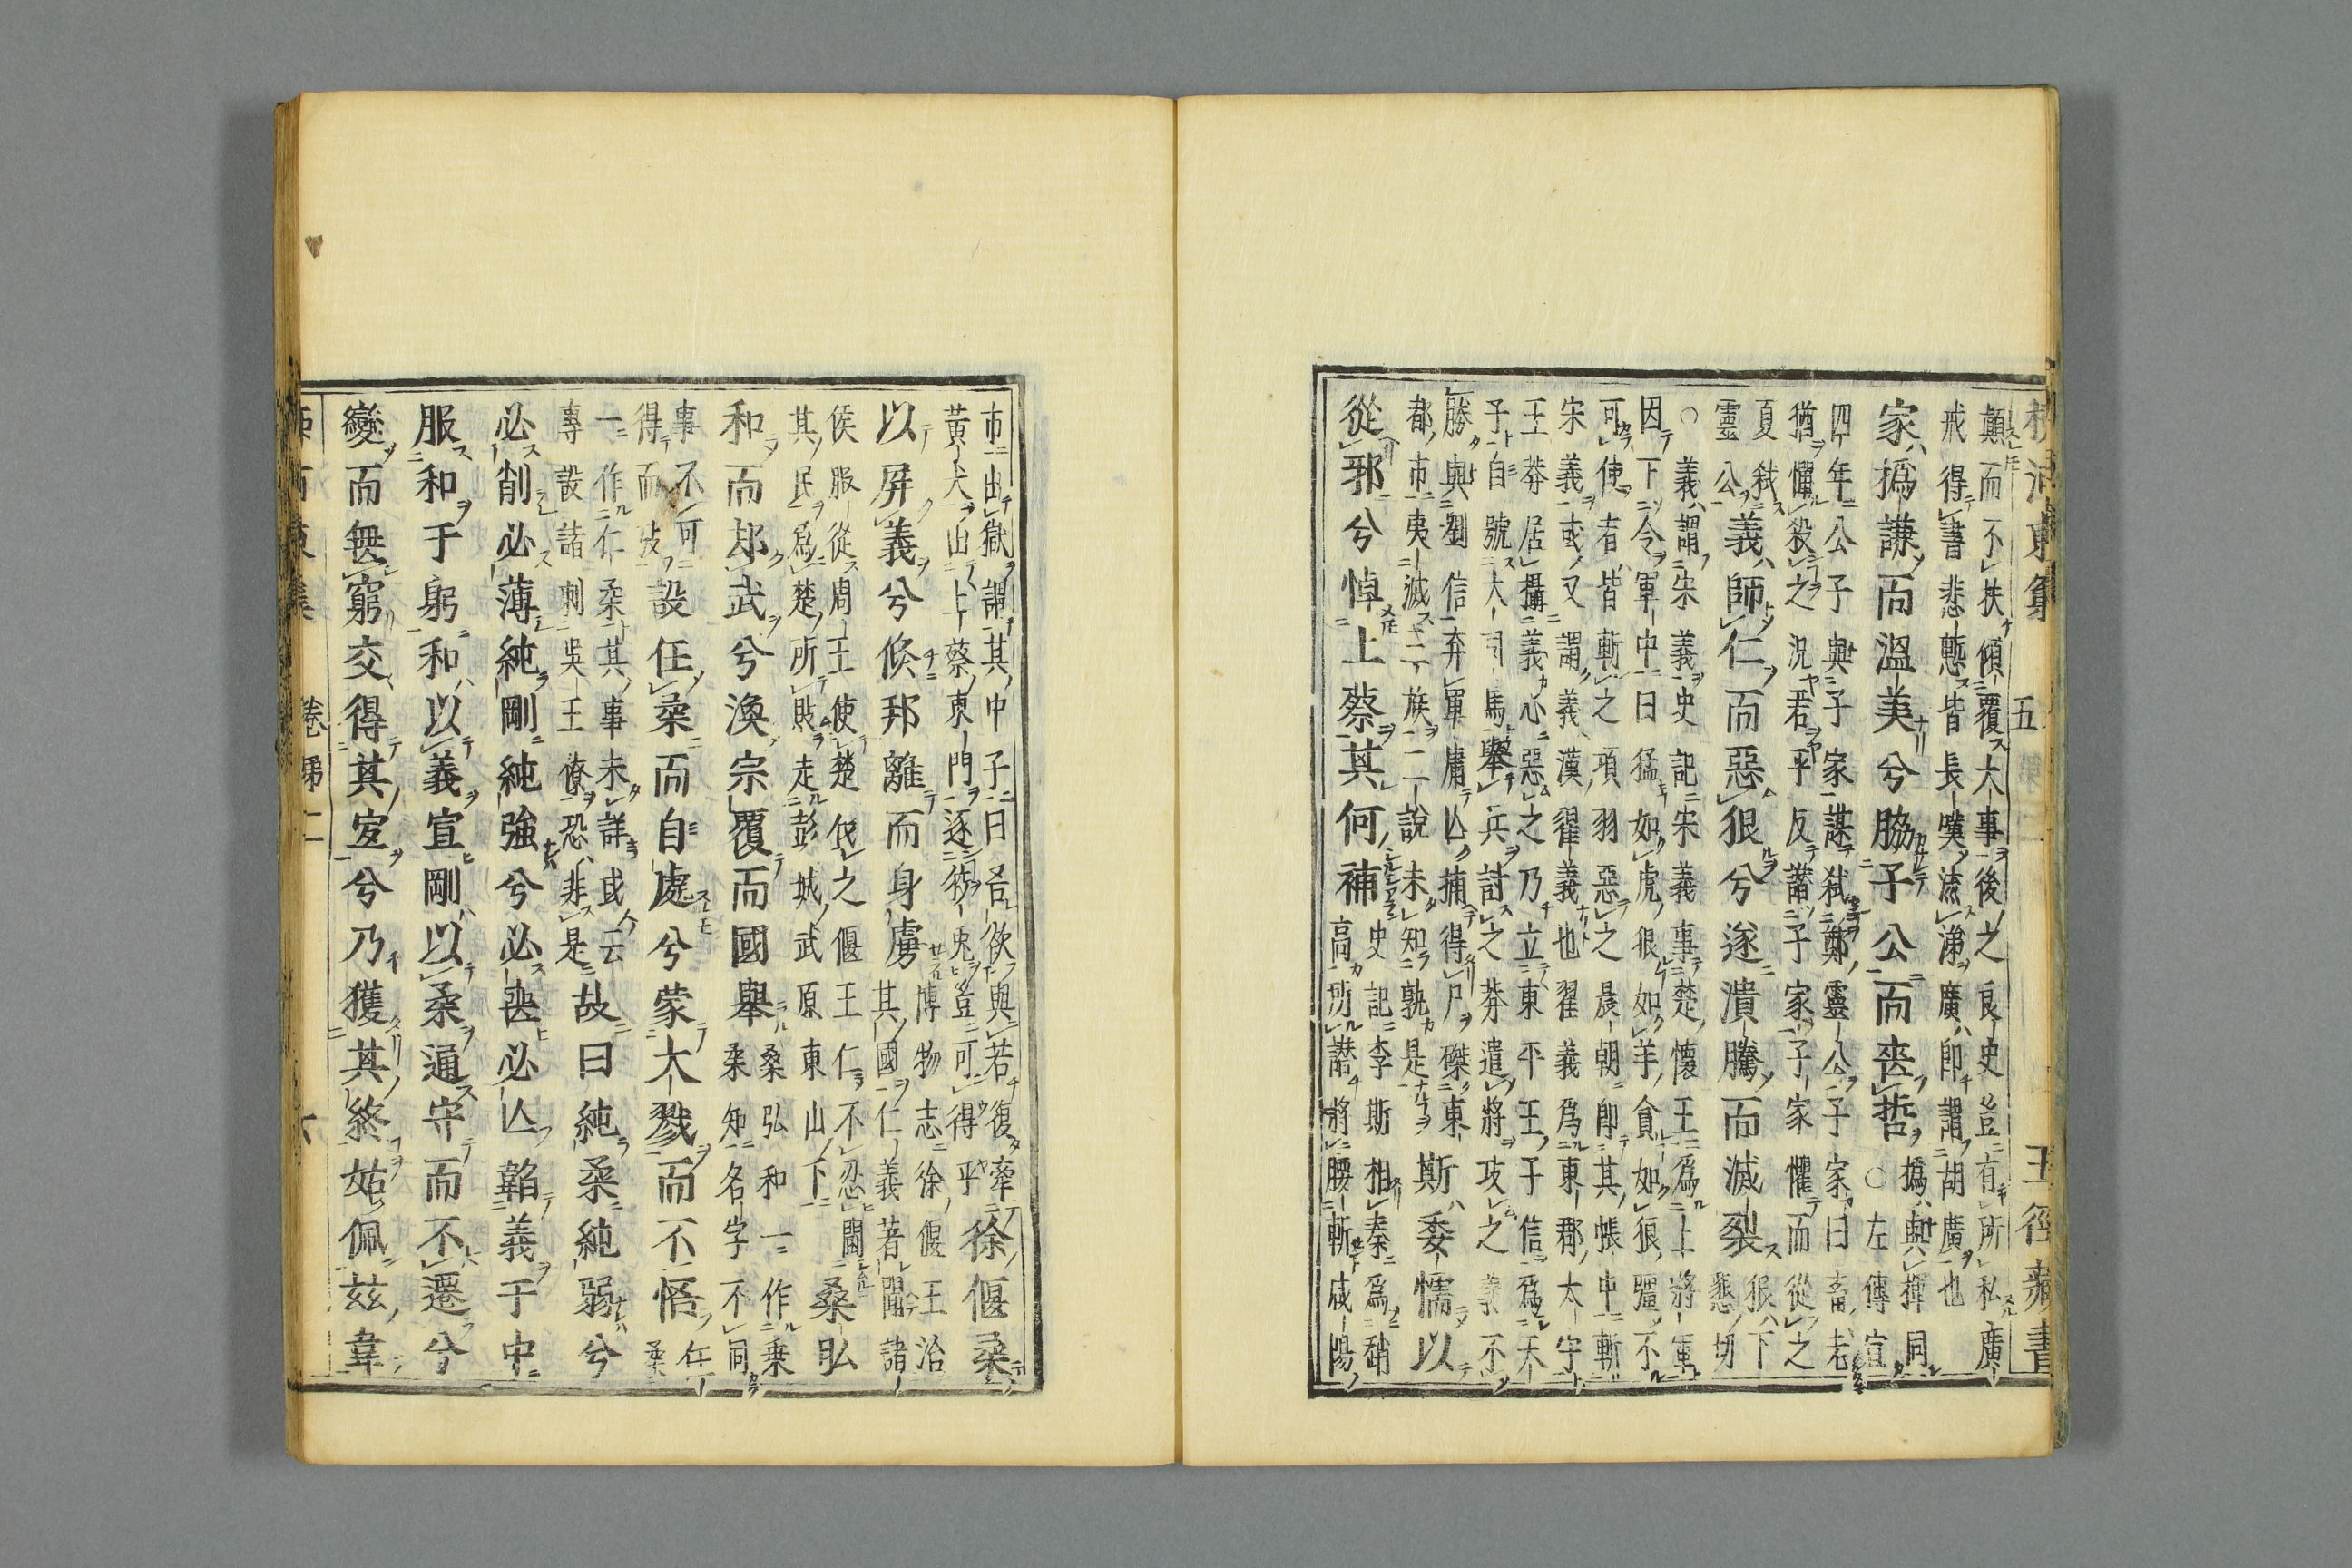 顛而不扶傾覆大事後之良史豈有所私廣
戒得書悲慙皆長嘆流涕廣卽謂胡廣也
家撝謙而溫美兮脇子公而喪哲
撝與揮同
○左傳宣
四年公子與子家謀弒鄭靈公子家曰畜老
猶憚殺之況君乎反譖子家子家懼而從之
夏弒
靈公
義師仁而惡狠兮遂潰騰而滅裂
狠下
懇切
○義謂宋義史記宋義事楚懷王爲上將軍
因下令軍中曰猛如虎狠如羊貪如狼彊不
可使者皆斬之項羽惡之晨朝卽其帳中斬
宋義或又謂義漢翟義也翟義爲東郡太守
王莽居攝義心惡之乃立東平王子信爲天
子自號大司馬舉兵討之莽遣將攻之義不
勝與劉信弃軍庸亾捕得尸磔東
都市夷滅三族二說未知孰是
斯委懦以
從邪兮悼上蔡其何補
史記李斯相秦爲硝
高所譖將腰斬咸陽
市出獄謂其中子曰吾欲與若復牽
黃犬出上蔡東門逐狡兎豈可得乎
徐偃柔
以屏義兮倐邦離而身虜
博物志徐偃王治
其國仁義著聞諸
侯服從周王使楚伐之偃王仁不忍鬪
其民爲楚所敗走彭城武原東山下
桑弘
和而却武兮渙宗覆而國舉
桑弘和一作乗
柔知名字不同
事不可
得而攷
設任柔而自處兮蒙大戮而不悟
任
柔
一作仁柔其事未詳或云
專設諸刺吳王僚恐非是
故曰純柔純弱兮
必削必薄純剛純強兮必喪必亾韜義于中
服和于躬和以義宣剛以柔通守而不遷兮
變而無窮交得其宜兮乃獲其終姑佩玆韋
卷第二
五
六
王徑藏書